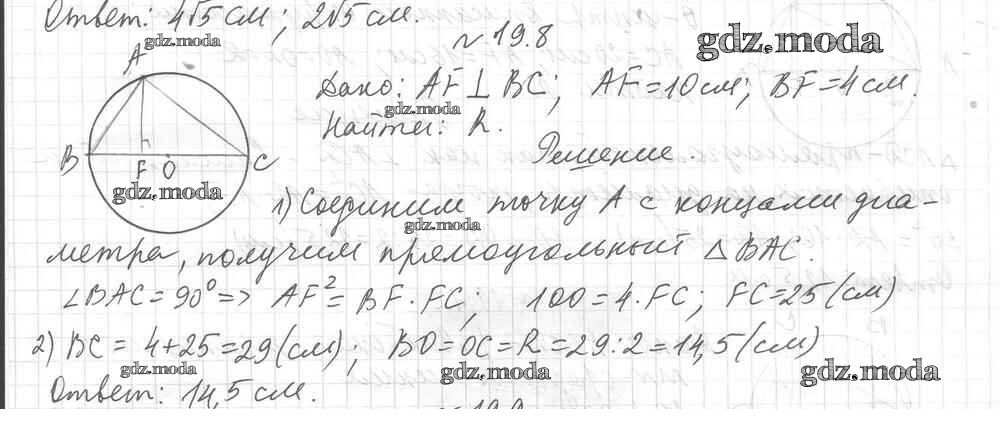 Ответ: 4√5 см; 2√5 см.
gdz.moda
№ 19.8
gdz.moda
A
Дано: AF ⊥ BC; AF = 10 см; BF = 4 см.
gdz.moda
Найти: R.
B F O C
Решение.
gdz.moda
1) Соединим точку A с концами диа-
gdz.moda
метра, получим прямоугольный △ BAC.
∠BAC = 90° => AF² = BF · FC; 100 = 4 · FC; FC = 25 (см)
2) BC = 4 + 25 = 29 (см); BO = OC = R = 29 : 2 = 14,5 (см)
gdz.moda gdz.moda gdz.moda
Ответ: 14,5 см.